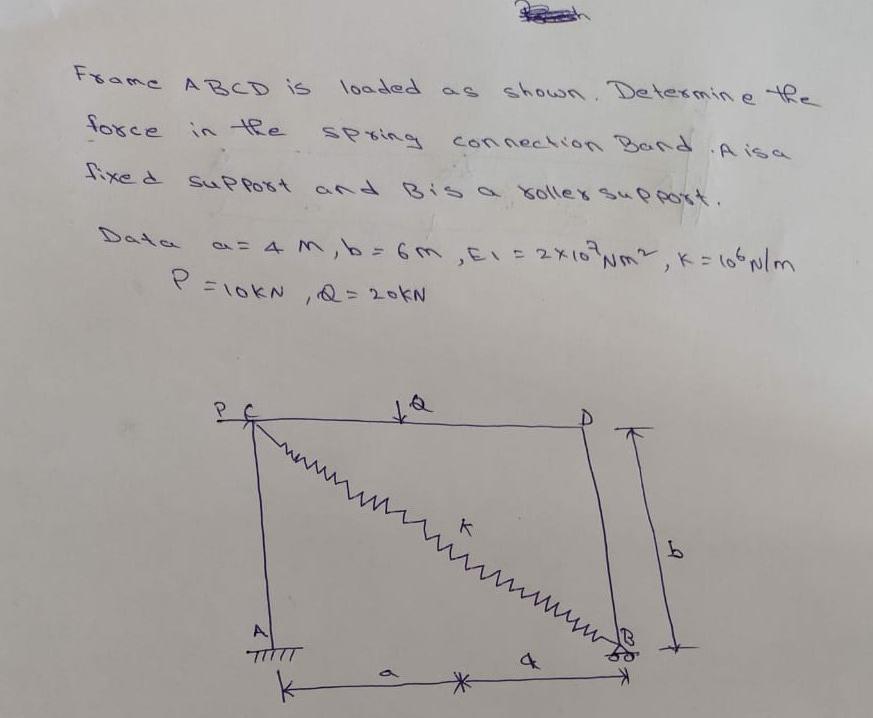 Frame ABCD is loaded as shown. Determine the
force in the spring connection Band . A is a
fixed support and B is a roller support.
Data a = 4 m, b = 6m, EI = 2×10⁷Nm², K = 10⁶N/m
P = 10KN, Q = 20KN
P C Q D
K
b
A B
a 4